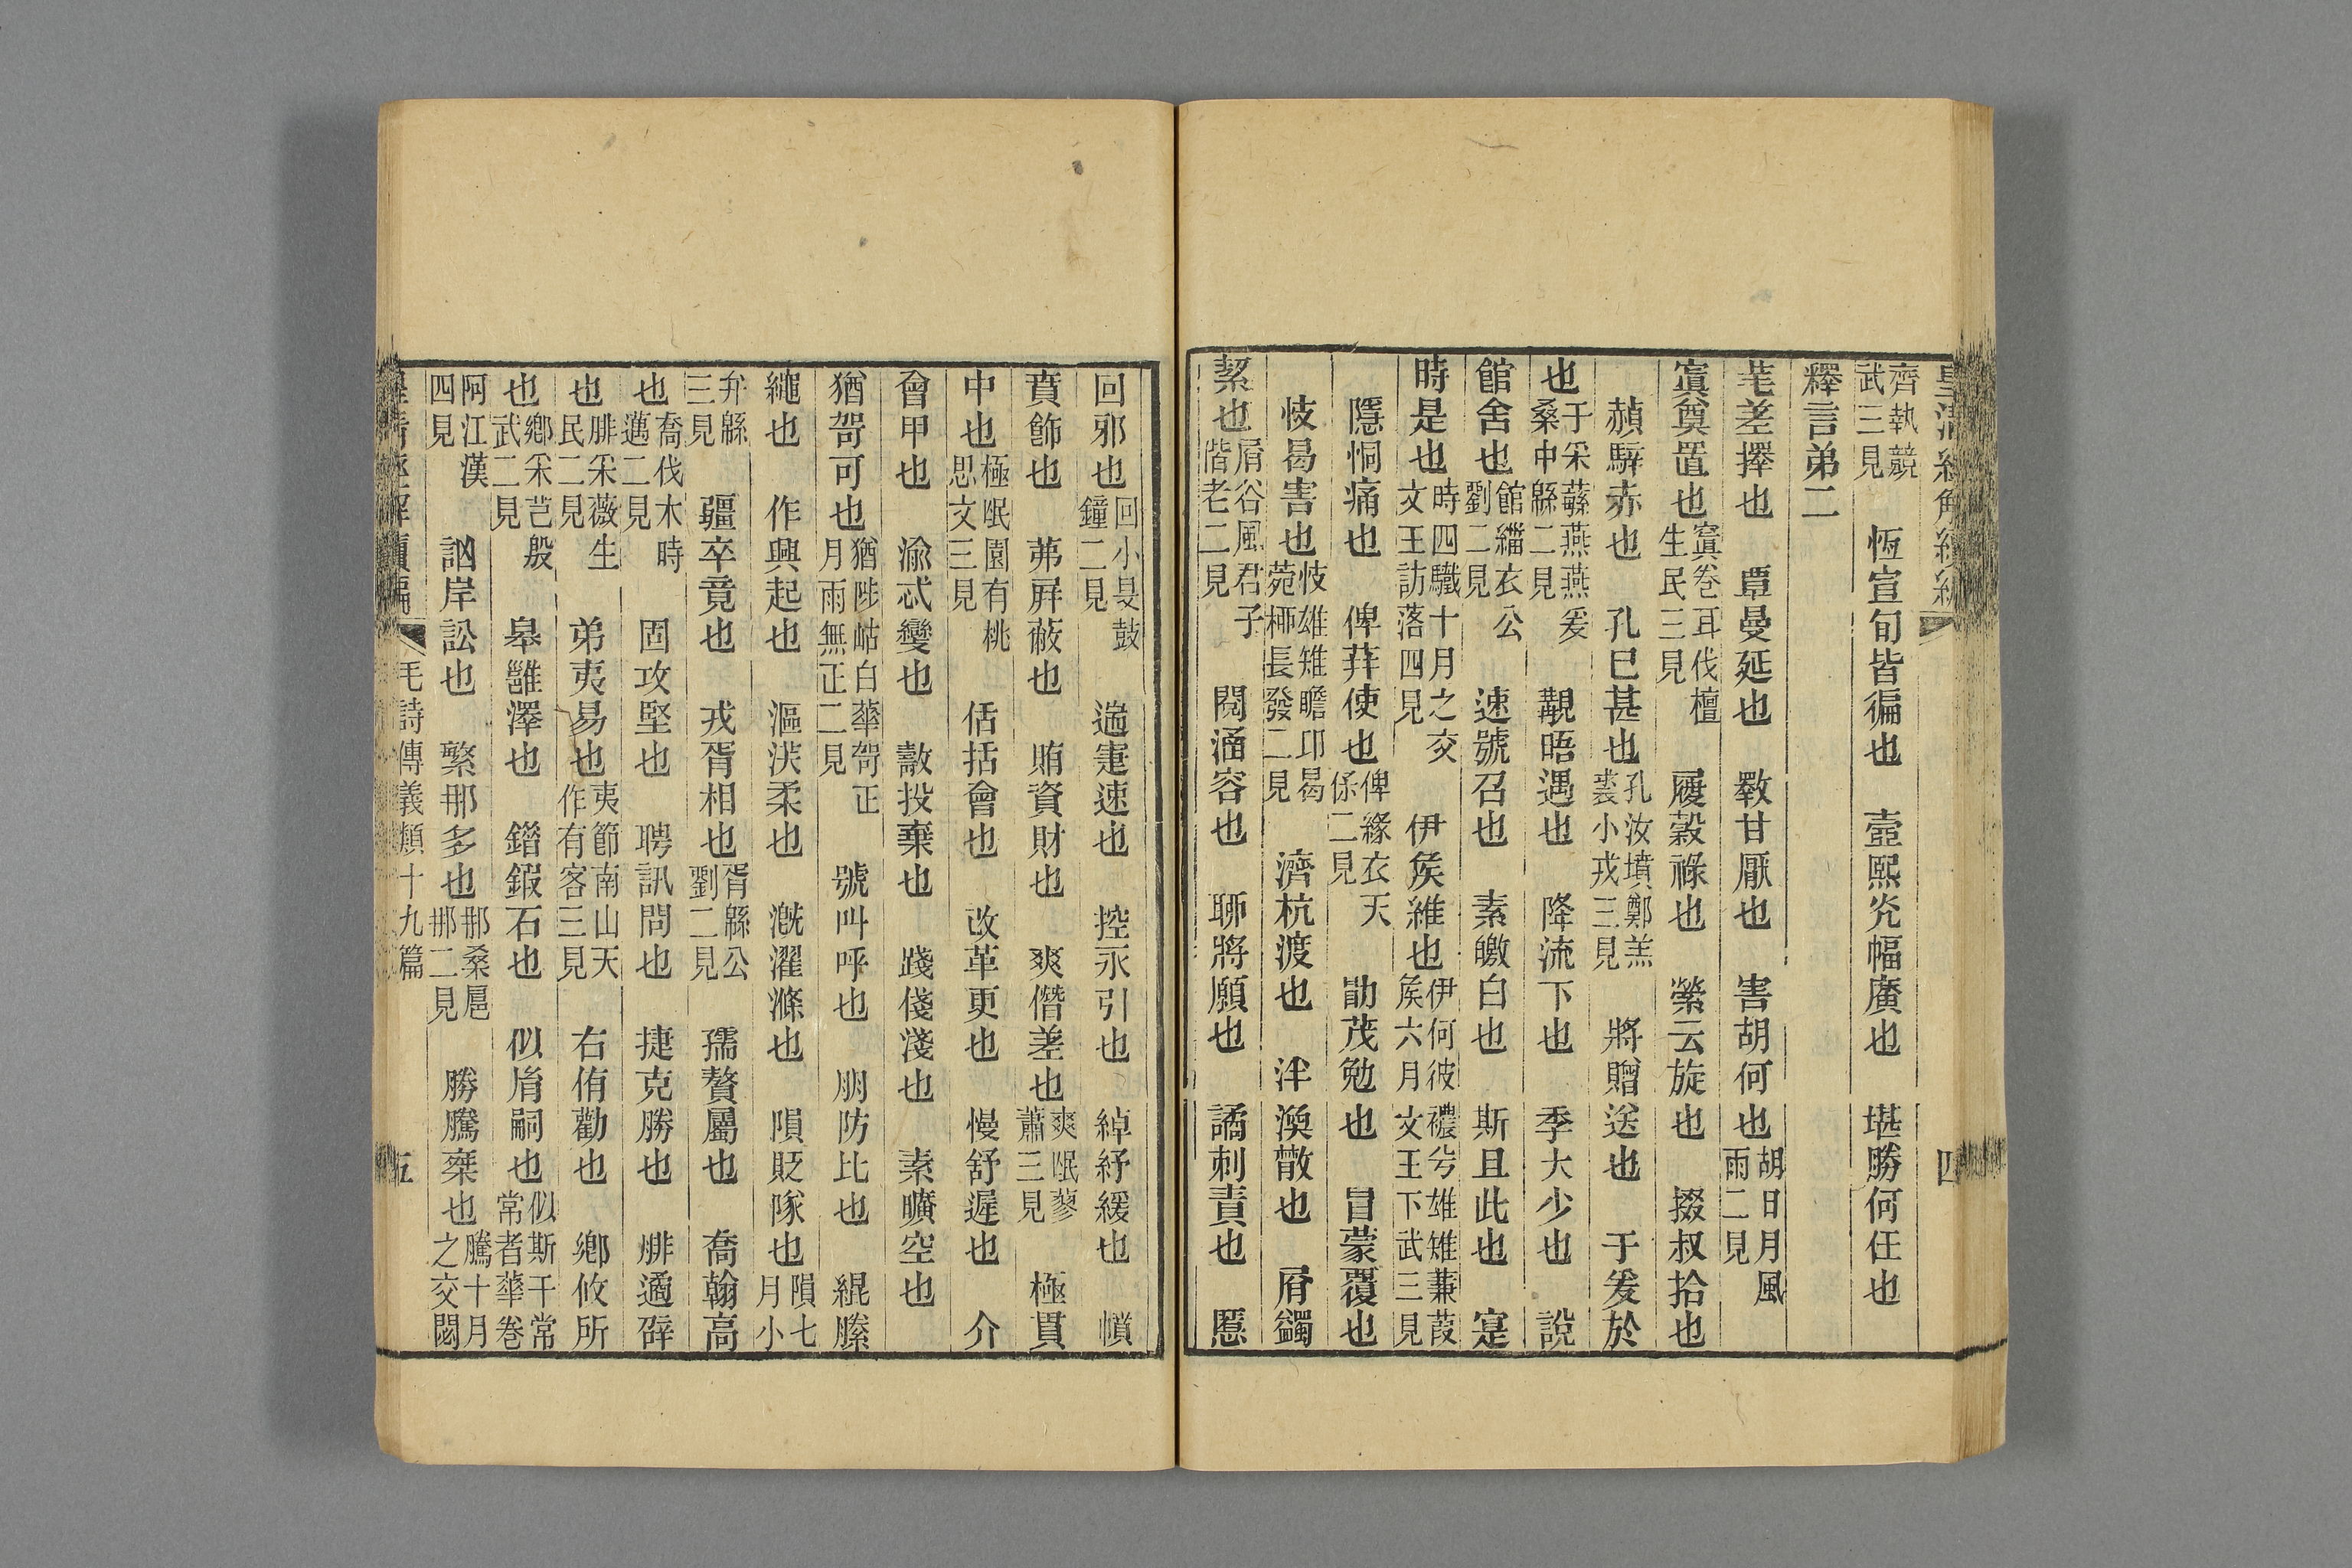 齊執競武三見　恆宣旬皆徧也　壼熙光幅廣也　堪勝何任也
釋言弟二
芼差擇也　覃曼延也　斁甘厭也　害胡何也胡日月風雨二見
寘奠置也寘卷耳伐檀生民三見　履穀祿也　縈云旋也　掇叔拾也
赬騂赤也　孔已甚也孔汝墳鄭羔裘小戎三見　將贈送也　于爰於
也于采蘩燕燕爰桑中緜二見　覯晤遇也　降流下也　季大少也　說
館舍也館緇衣公劉二見　速號召也　素皦白也　斯且此也　寔
時是也時四驖十月之交文王訪落四見　伊矦維也伊何彼襛兮雄雉蒹葭矦六月文王下武三見
隱恫痛也　俾荓使也俾綠衣天保二見　勖茂勉也　冒蒙覆也
忮曷害也忮雄雉瞻卬曷菀桺長發二見　濟杭渡也　泮渙散也　屑蠲
絜也屑谷風君子偕老二見　閱涵容也　聊將願也　譎刺責也　慝
回邪也回小旻鼓鐘二見　遄疌速也　控永引也　綽紓緩也　幩
賁飾也　茀屛蔽也　賄資財也　爽僭差也爽氓蓼蕭三見　極貫
中也極氓園有桃思文三見　佸括會也　改革更也　慢舒遲也　介
會甲也　渝忒變也　敽投棄也　踐俴淺也　素曠空也
猶哿可也猶陟岵白華哿正月雨無正二見　號叫呼也　朋防比也　緄縢
繩也　作興起也　漚泆柔也　漑濯滌也　隕貶隊也隕七月小
弁緜三見　疆卒竟也　戎胥相也胥緜公劉二見　孺贅屬也　喬翰高
也喬伐木時邁二見　固攻堅也　聘訊問也　捷克勝也　腓遹辟
也腓采薇生民二見　弟夷易也夷節南山天作有客三見　右侑勸也　鄉攸所
也鄉采芑殷武二見　皋雝澤也　鍇鍜石也　似胤嗣也似斯干常常者華卷
阿江漢四見　訩岸訟也　繁那多也那桑扈那二見　勝騰椉也騰十月之交閟
毛詩傳義類十九篇　五